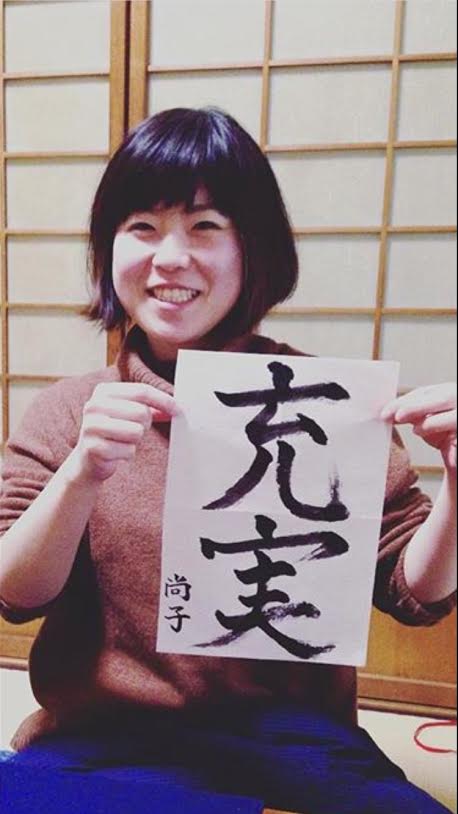 充実
尚子